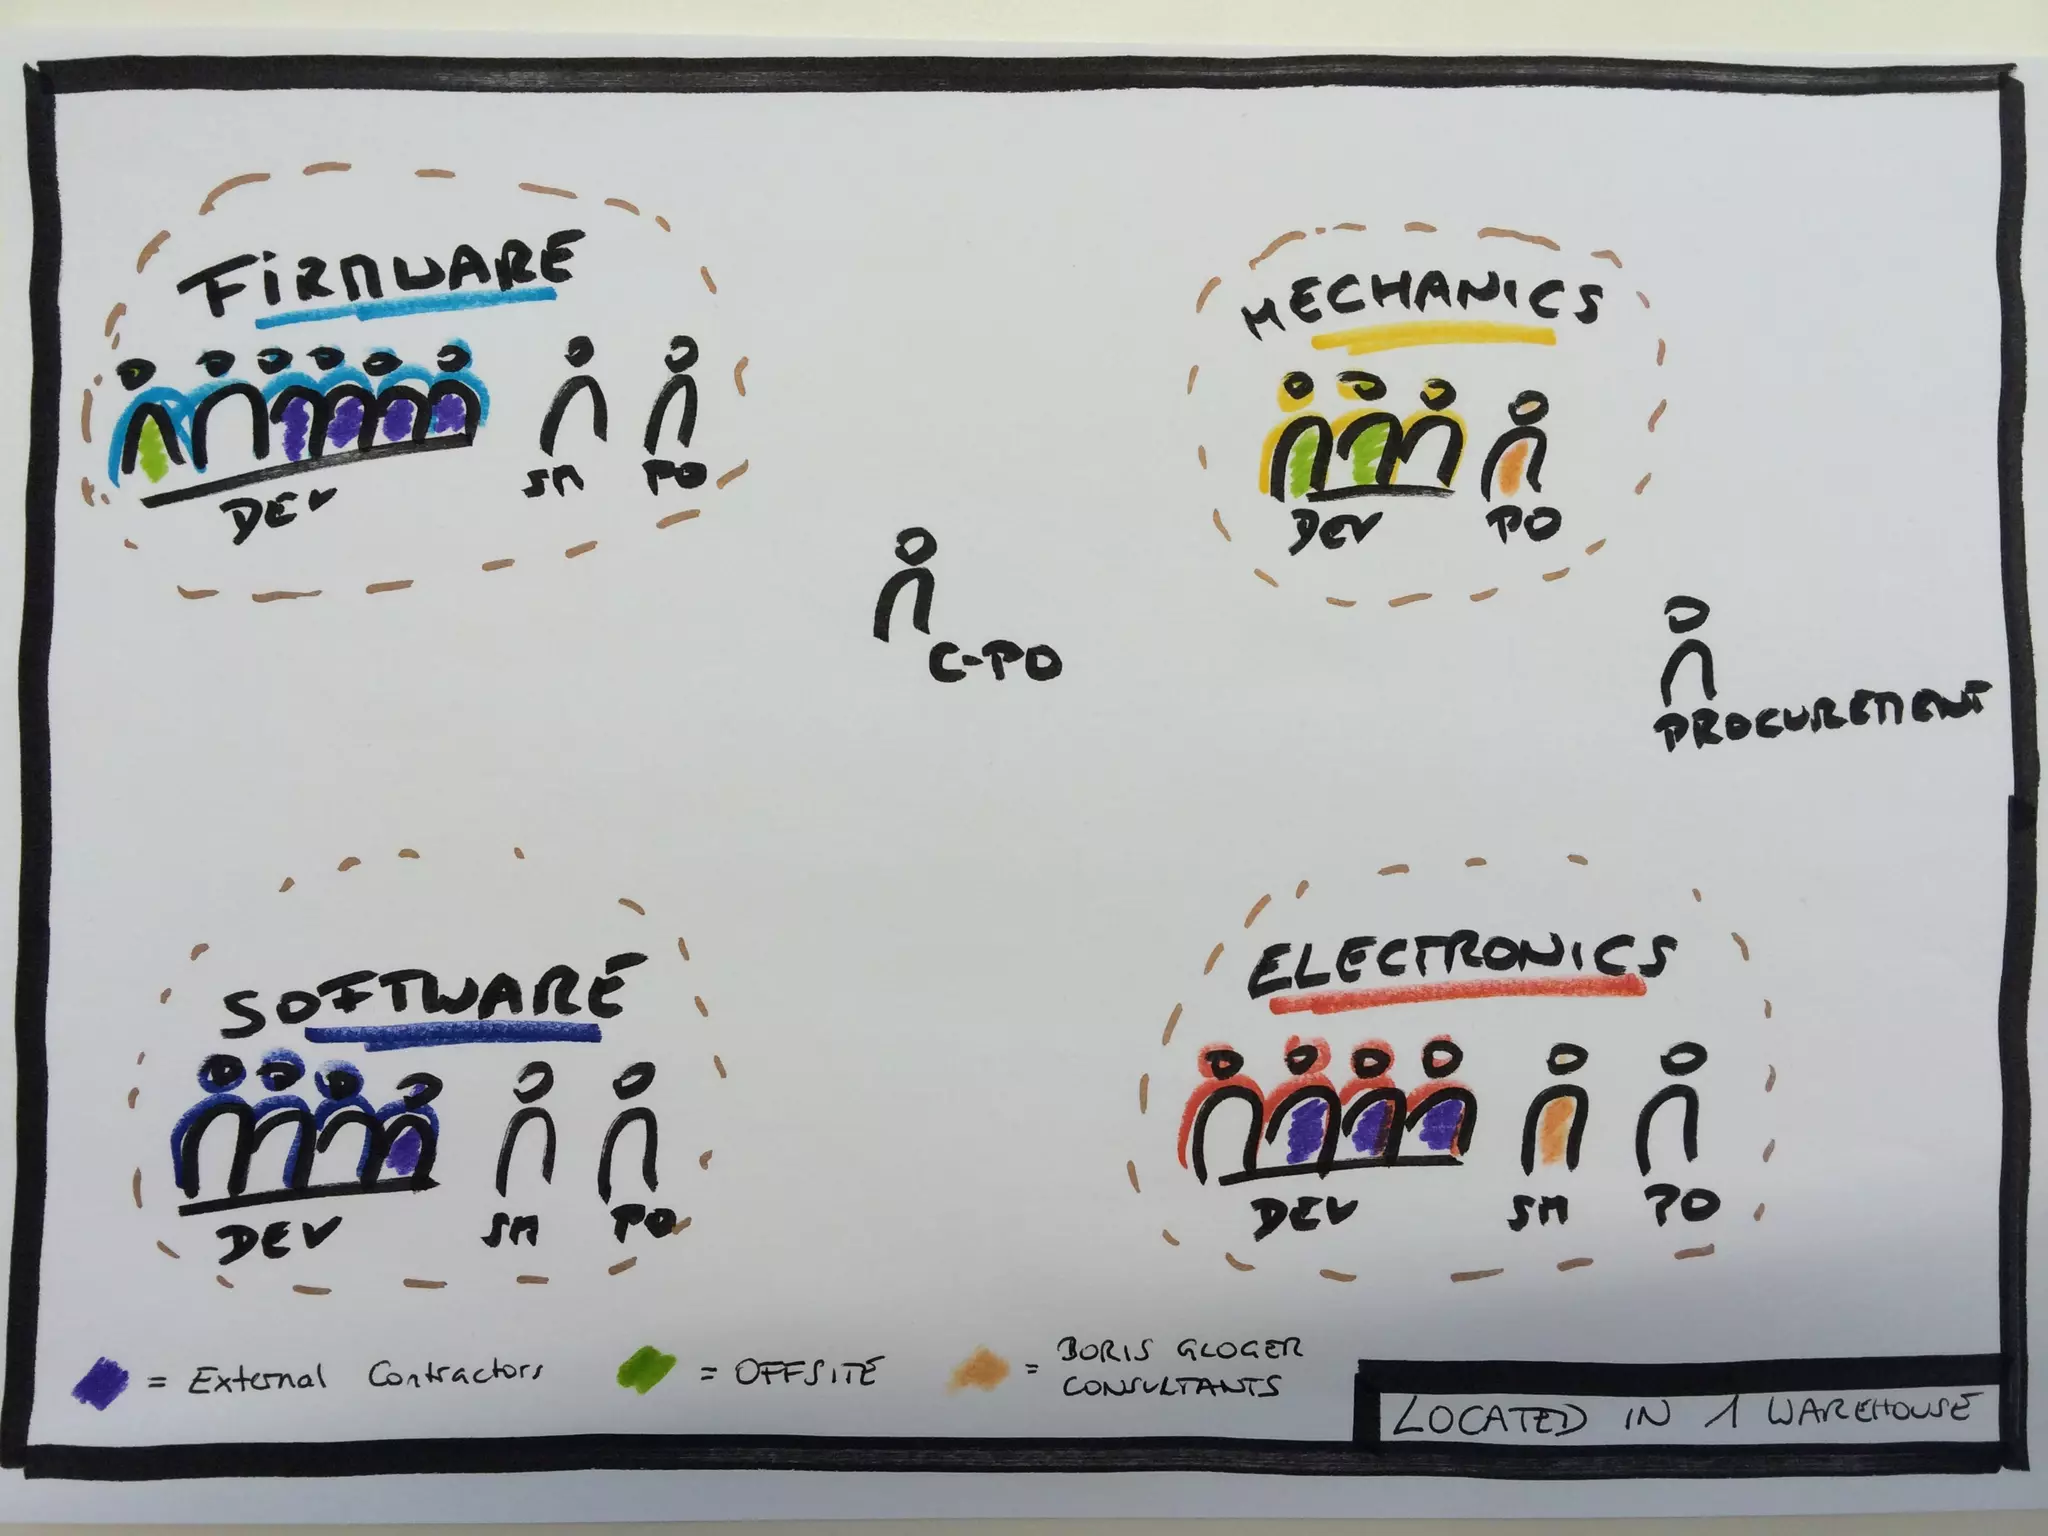 FIRMWARE
DEV
SM
PO
MECHANICS
DEV
PO
C-PO
PROCUREMENT
SOFTWARE
DEV
SM
PO
ELECTRONICS
DEV
SM
PO
= External Contractors
= OFFSITE
= BORIS GLOGER
CONSULTANTS
LOCATED IN 1 WAREHOUSE